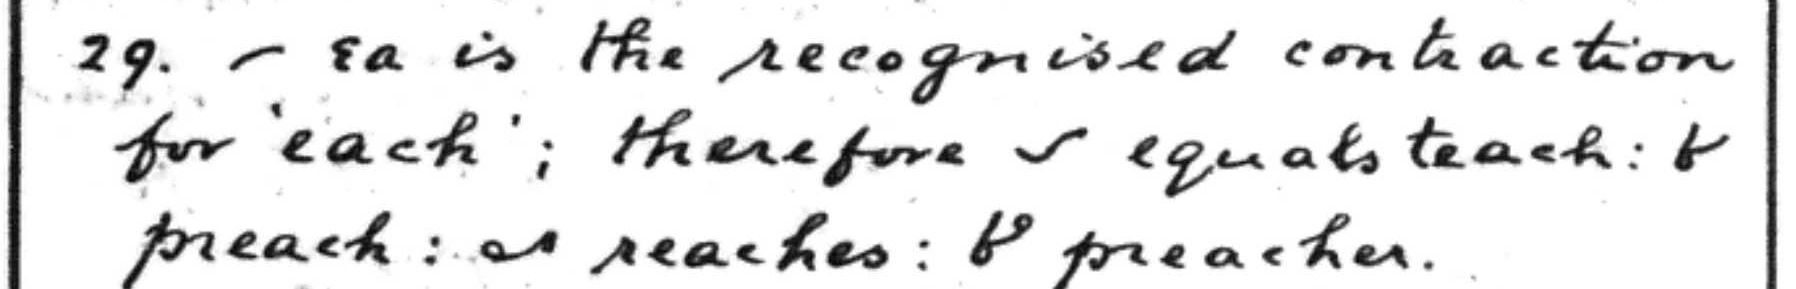 29. – Ea is the recognised contraction
for 'each'; therefore equals teach:
preach: reaches: preacher.